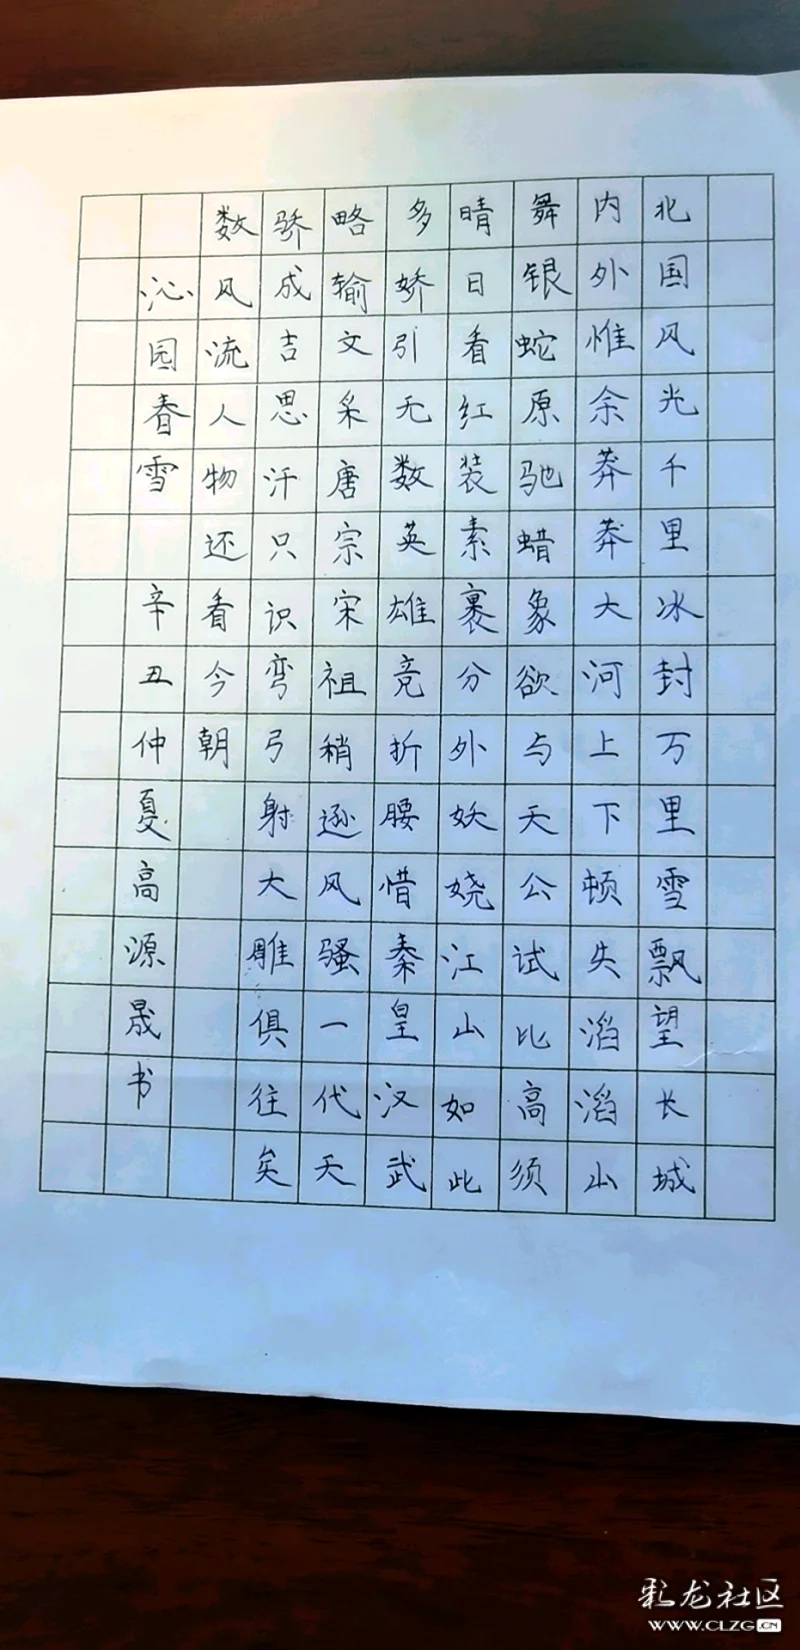 北国风光千里冰封万里雪飘望长城
内外惟余莽莽大河上下顿失滔滔山
舞银蛇原驰蜡象欲与天公试比高须
晴日看红装素裹分外妖娆江山如此
多娇引无数英雄竞折腰惜秦皇汉武
略输文采唐宗宋祖稍逊风骚一代天
骄成吉思汗只识弯弓射大雕俱往矣
数风流人物还看今朝
沁园春雪 辛丑仲夏高源晟书
彩龙社区
WWW.CLZG.CN